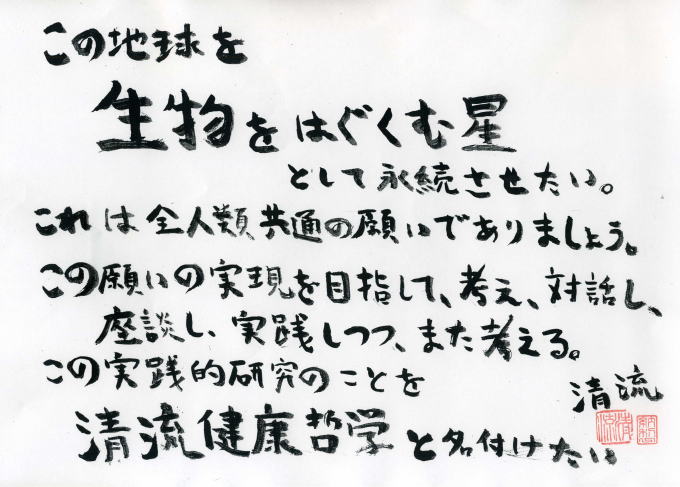 この地球を
生物をはぐくむ星
として永続させたい。
これは全人類共通の願いでありましょう。
この願いの実現を目指して、考え、対話し、
座談し、実践しつつ、また考える。
この実践的研究のことを
清流
清流健康哲学と名付けたい